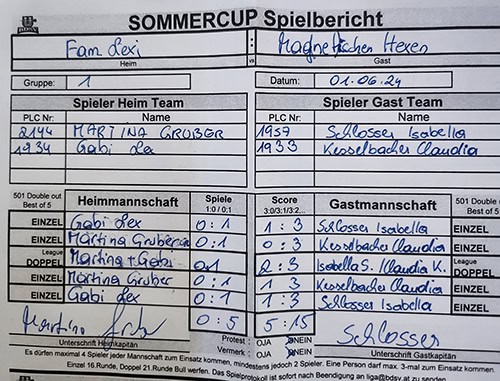 SOMMERCUP Spielbericht
Fam Lexi : Magnetischen Hexen
Heim vs Gast
Gruppe: 1 Datum: 01.06.24
Spieler Heim Team Spieler Gast Team
PLC Nr: Name PLC Nr: Name
2144 MARTINA GRUBER 1957 Schlosser Isabella
1934 Gabi Lex 1933 Kesselbacher Claudia
501 Double out Best of 5 Heimmannschaft Spiele 1:0 / 0:1 Score 3:0/3:1/3:2... Gastmannschaft 501 Double Best of 5
EINZEL Gabi Lex 0:1 1:3 Schlosser Isabella EINZEL
EINZEL Martina Gruber 0:1 0:3 Kesselbacher Claudia EINZEL
League DOPPEL Martina + Gabi 0:1 2:3 Isabella S. / Claudia K. League DOPPEL
EINZEL Martina Gruber 0:1 1:3 Kesselbacher Claudia EINZEL
EINZEL Gabi Lex 0:1 1:3 Schlosser Isabella EINZEL
0:5 5:15
Protest: OJA NEIN
Vermerk: OJA NEIN
Schlosser
Unterschrift Heimkapitän Unterschrift Gastkapitän
Es dürfen maximal 4 Spieler jeder Mannschaft zum Einsatz kommen, mindestens jedoch 2 Spieler. Eine Person darf max. 3-mal zum Einsatz kommen.
Einzel 16.Runde, Doppel 21.Runde Bull werfen. Das Spielprotokoll ist sofort nach Beendigung an liga@bdsv.at zu senden